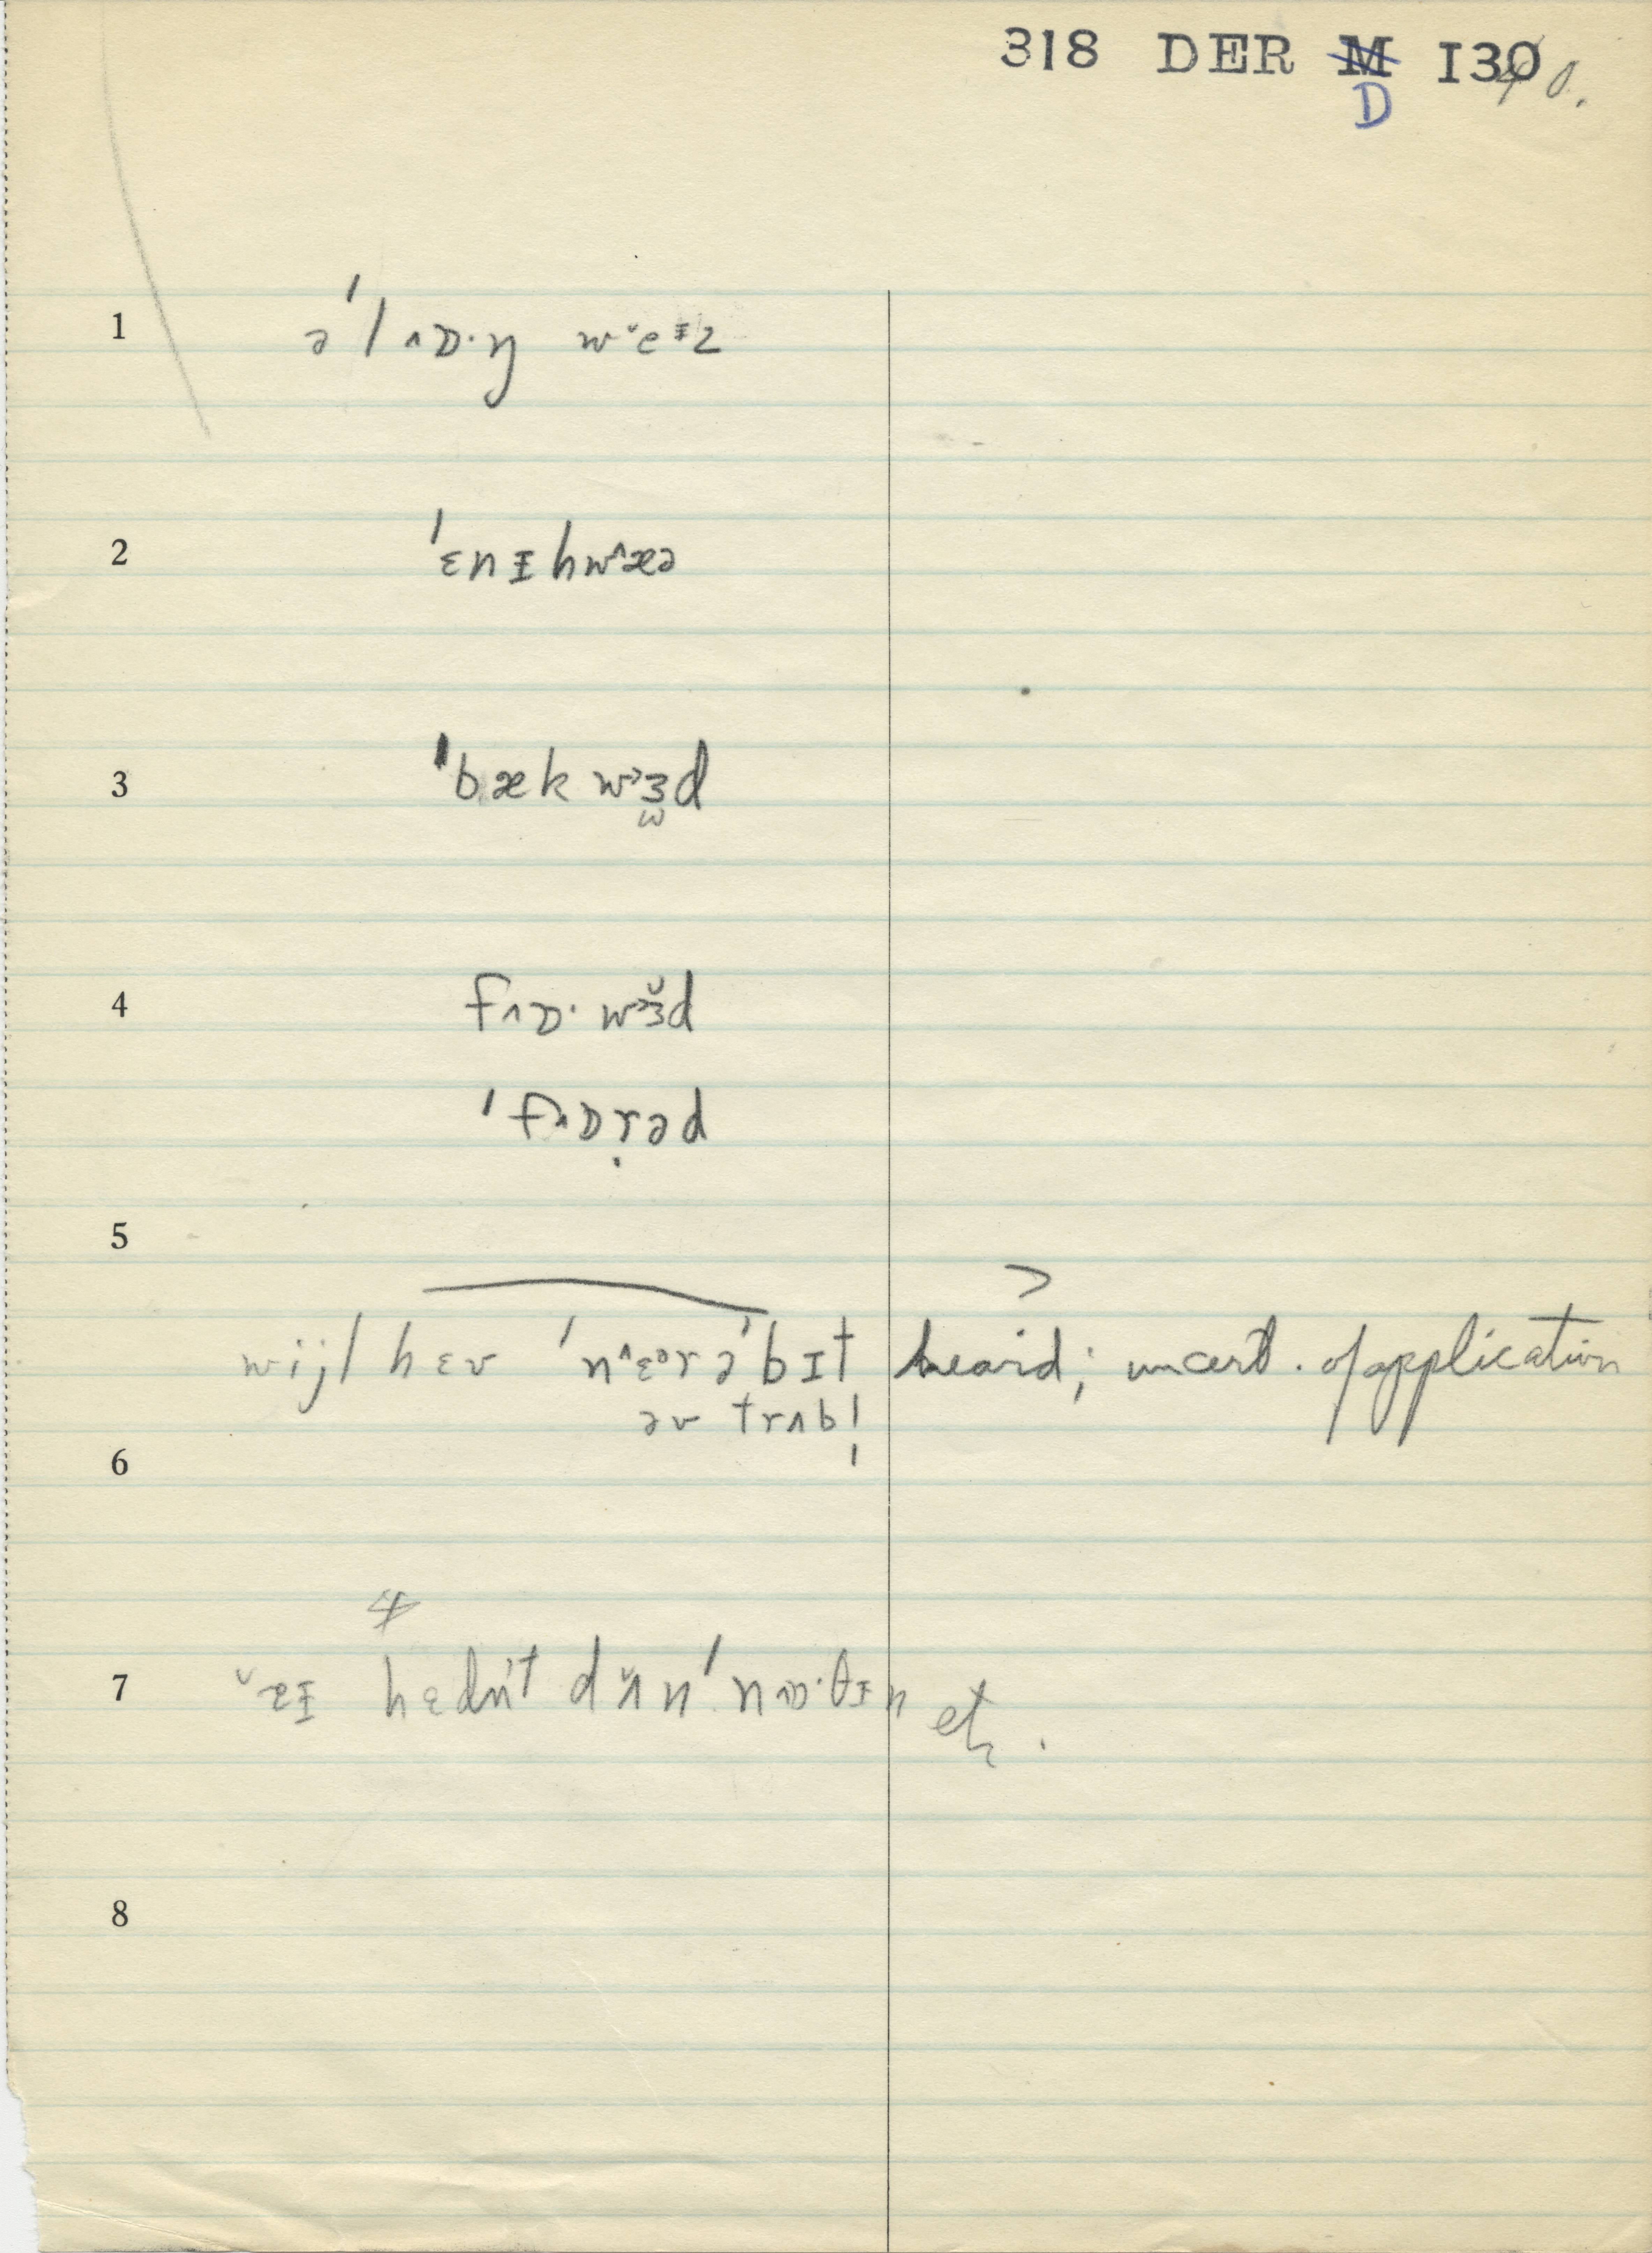 318 DER M I30 40.
D
1 ə ˈl ^ɒ·ŋ w ˇe ᵻ z
2 ˈɛnɪhw^æə
3 ˈbæk wɜd
4 f^ɒ· wɜ̆d
ˈf^ɒṛəd
5
>
wijl hɛv ˈn^ɛᵊrəˈbɪt heard; uncert. of application
əv trʌbl̩
6
4
7 ˇæɪ hɛdn̍t dʌ̆n ˈn^ɒ·θɪn etc.
8